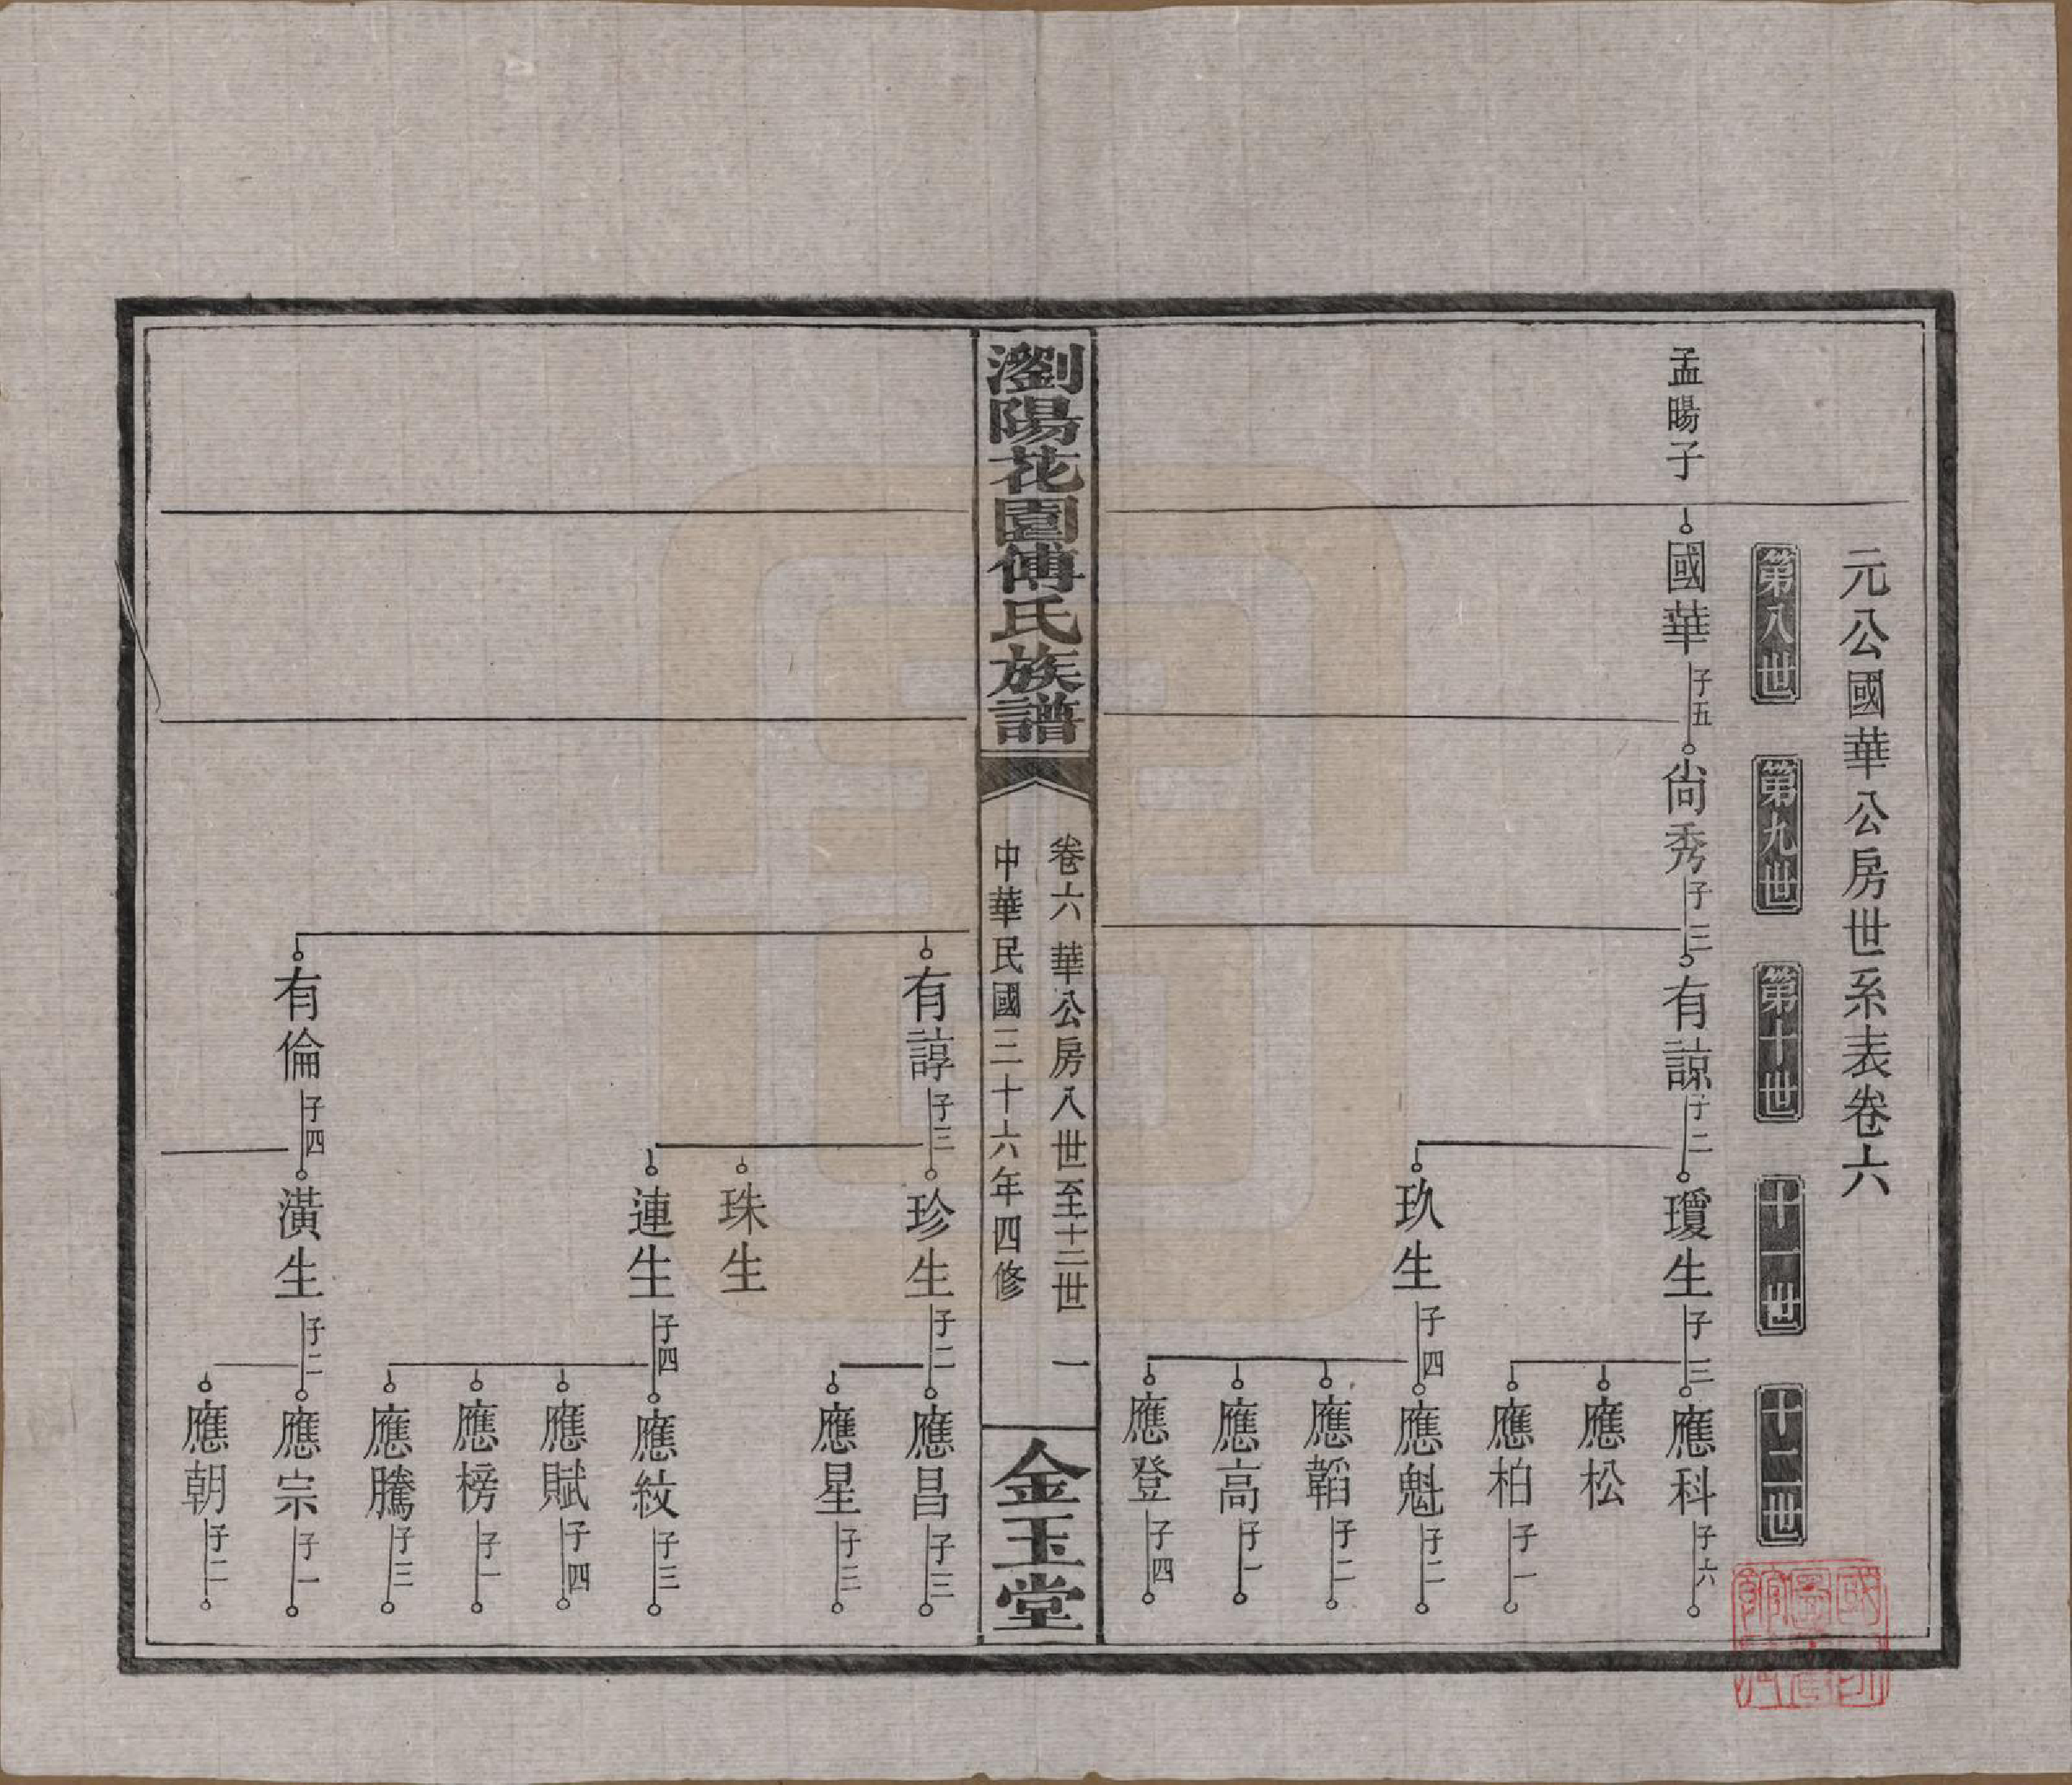 元公國華公房世系表卷六
第八世
第九世
第十世
十一世
十二世
孟暘子
國華 子五
尚秀 子三
有諒 子二
瓊生 子三
應科 子六
應松
應柏 子一
玖生 子四
應魁 子二
應韜 子二
應高 子一
應登 子四
瀏陽花園傅氏族譜
卷六 華公房八世至十二世 一
中華民國三十六年四修
金玉堂
有諄 子三
珍生 子二
應昌 子三
應星 子三
珠生
連生 子四
應紋 子三
應賦 子四
應榜 子一
應騰 子三
有倫 子四
潢生 子二
應宗 子一
應朝 子二